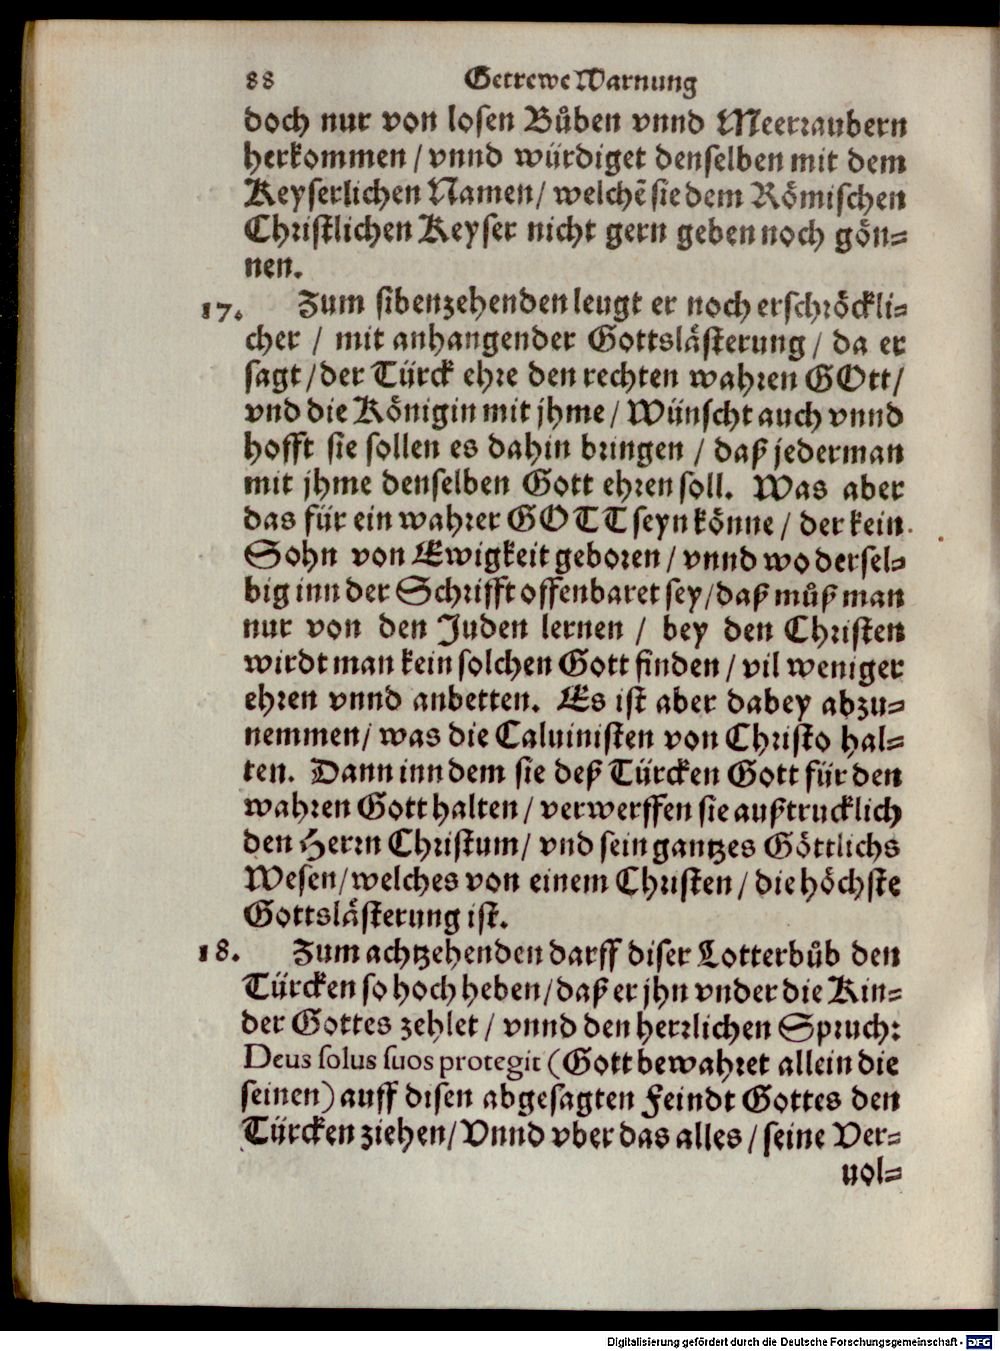 88 Getrewe Warnung
doch nur von losen Bůben vnnd Meerraubern
herkommen / vnnd würdiget denselben mit dem
Keyserlichen Namen / welchẽ sie dem Römischen
Christlichen Keyser nicht gern geben noch gön-
nen.
17. Zum sibenzehenden leugt er noch erschröckli-
cher / mit anhangender Gottslästerung / da er
sagt / der Türck ehre den rechten wahren GOtt /
vnd die Königin mit jhme / Wünscht auch vnnd
hofft sie sollen es dahin bringen / daß jederman
mit jhme denselben Gott ehren soll. Was aber
das für ein wahrer GOTT seyn könne / der kein
Sohn von Ewigkeit geboren / vnnd wo dersel-
big inn der Schrifft offenbaret sey / daß můß man
nur von den Juden lernen / bey den Christen
wirdt man kein solchen Gott finden / vil weniger
ehren vnnd anbetten. Es ist aber dabey abzu-
nemmen / was die Caluinisten von Christo hal-
ten. Dann inn dem sie deß Türcken Gott für den
wahren Gott halten / verwerffen sie außtrucklich
den Herrn Christum / vnd sein gantzes Göttlichs
Wesen / welches von einem Christen / die höchste
Gottslästerung ist.
18. Zum achtzehenden darff diser Lotterbůb den
Türcken so hoch heben / daß er jhn vnder die Kin-
der Gottes zehlet / vnnd den herrlichen Spruch:
Deus solus suos protegit (Gott bewahret allein die
seinen) auff disen abgesagten Feindt Gottes den
Türcken ziehen / Vnnd vber das alles / seine Ver-
nol-
Digitalisierung gefördert durch die Deutsche Forschungsgemeinschaft - DFG